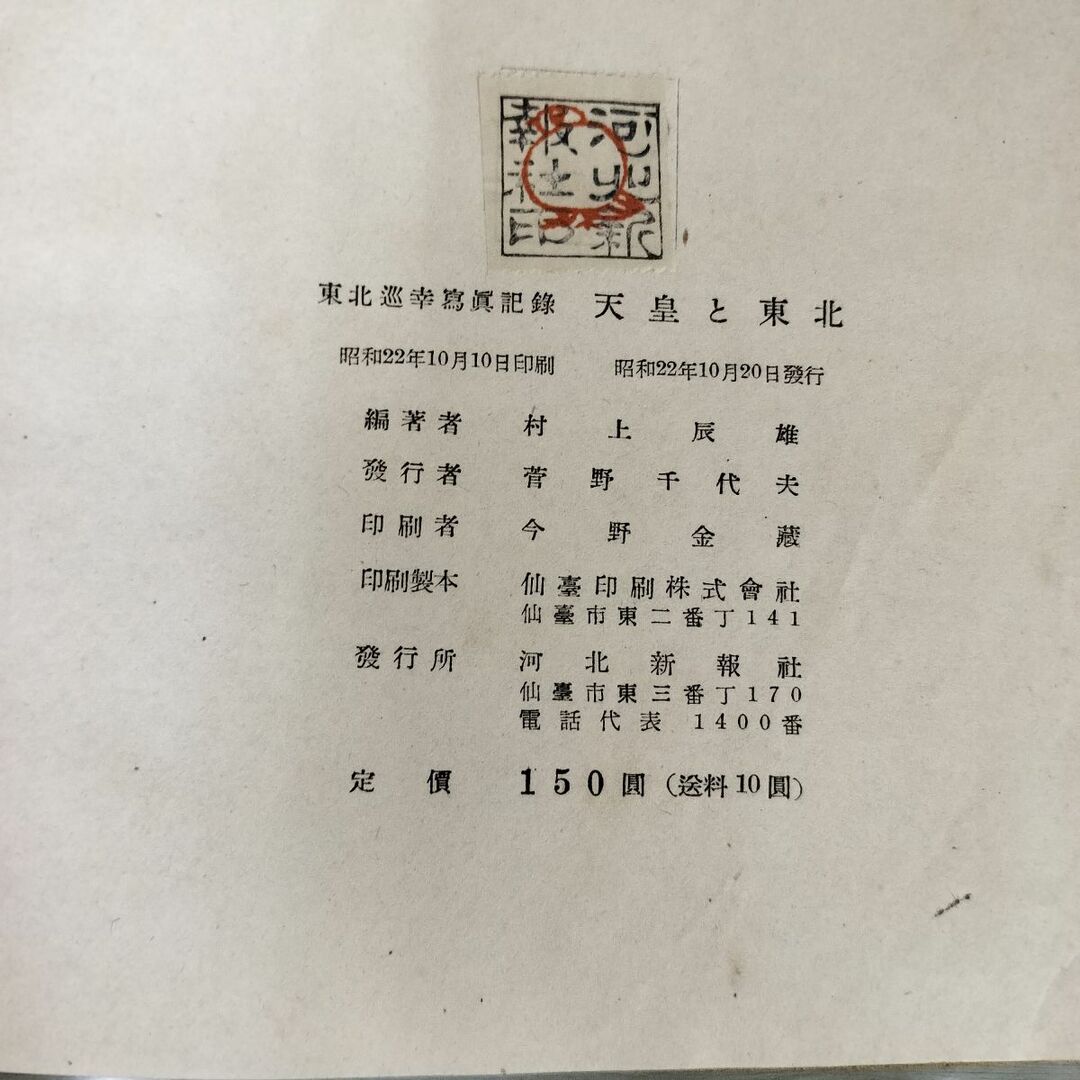 河北新
報社印
東北巡幸寫眞記錄 天皇と東北
昭和22年10月10日印刷 昭和22年10月20日發行
編著者 村上辰雄
發行者 菅野千代夫
印刷者 今野金藏
印刷製本 仙臺印刷株式會社
仙臺市東二番丁141
發行所 河北新報社
仙臺市東三番丁170
電話代表 1400番
定價 150圓(送料10圓)